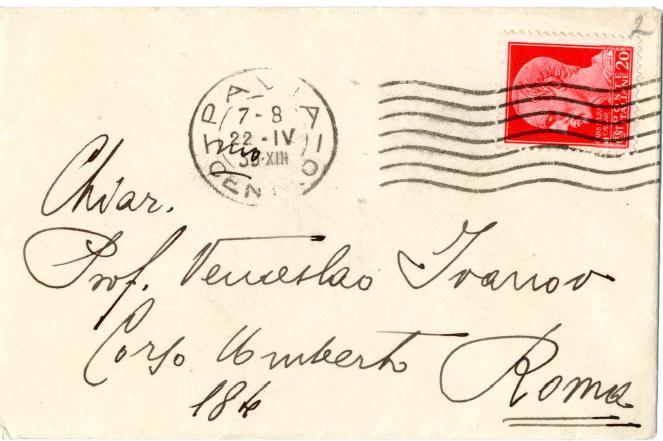 2
PAVIA
7-8
22-IV
35·XIII
20
POSTE
ITALIANE
Chiar.
Prof. Venceslao Ivanov
Corso Umberto
184 Roma